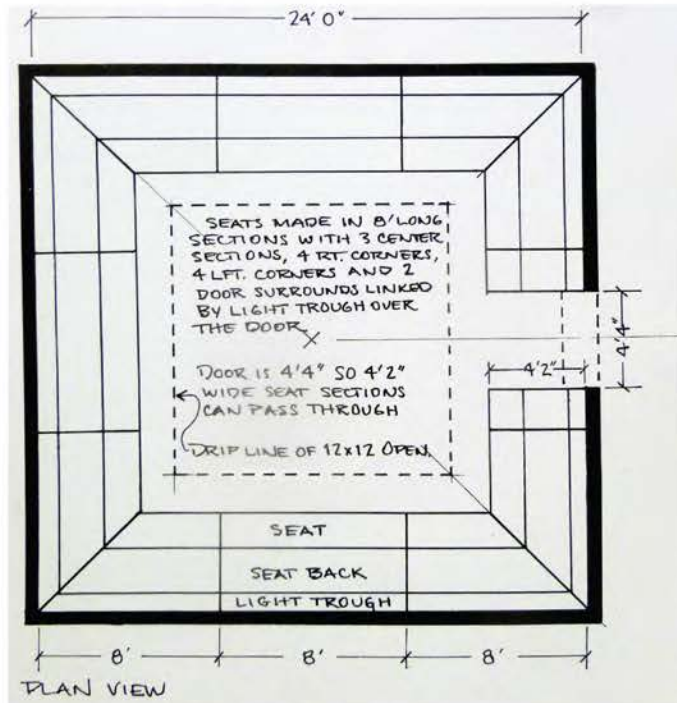 24' 0"
SEATS MADE IN 8' LONG
SECTIONS WITH 3 CENTER
SECTIONS, 4 RT. CORNERS,
4 LFT. CORNERS AND 2
DOOR SURROUNDS LINKED
BY LIGHT TROUGH OVER
THE DOOR.
DOOR IS 4'4" SO 4'2"
WIDE SEAT SECTIONS
CAN PASS THROUGH
DRIP LINE OF 12x12 OPEN.
4'2"
4'4"
SEAT
SEAT BACK
LIGHT TROUGH
8'
8'
8'
PLAN VIEW